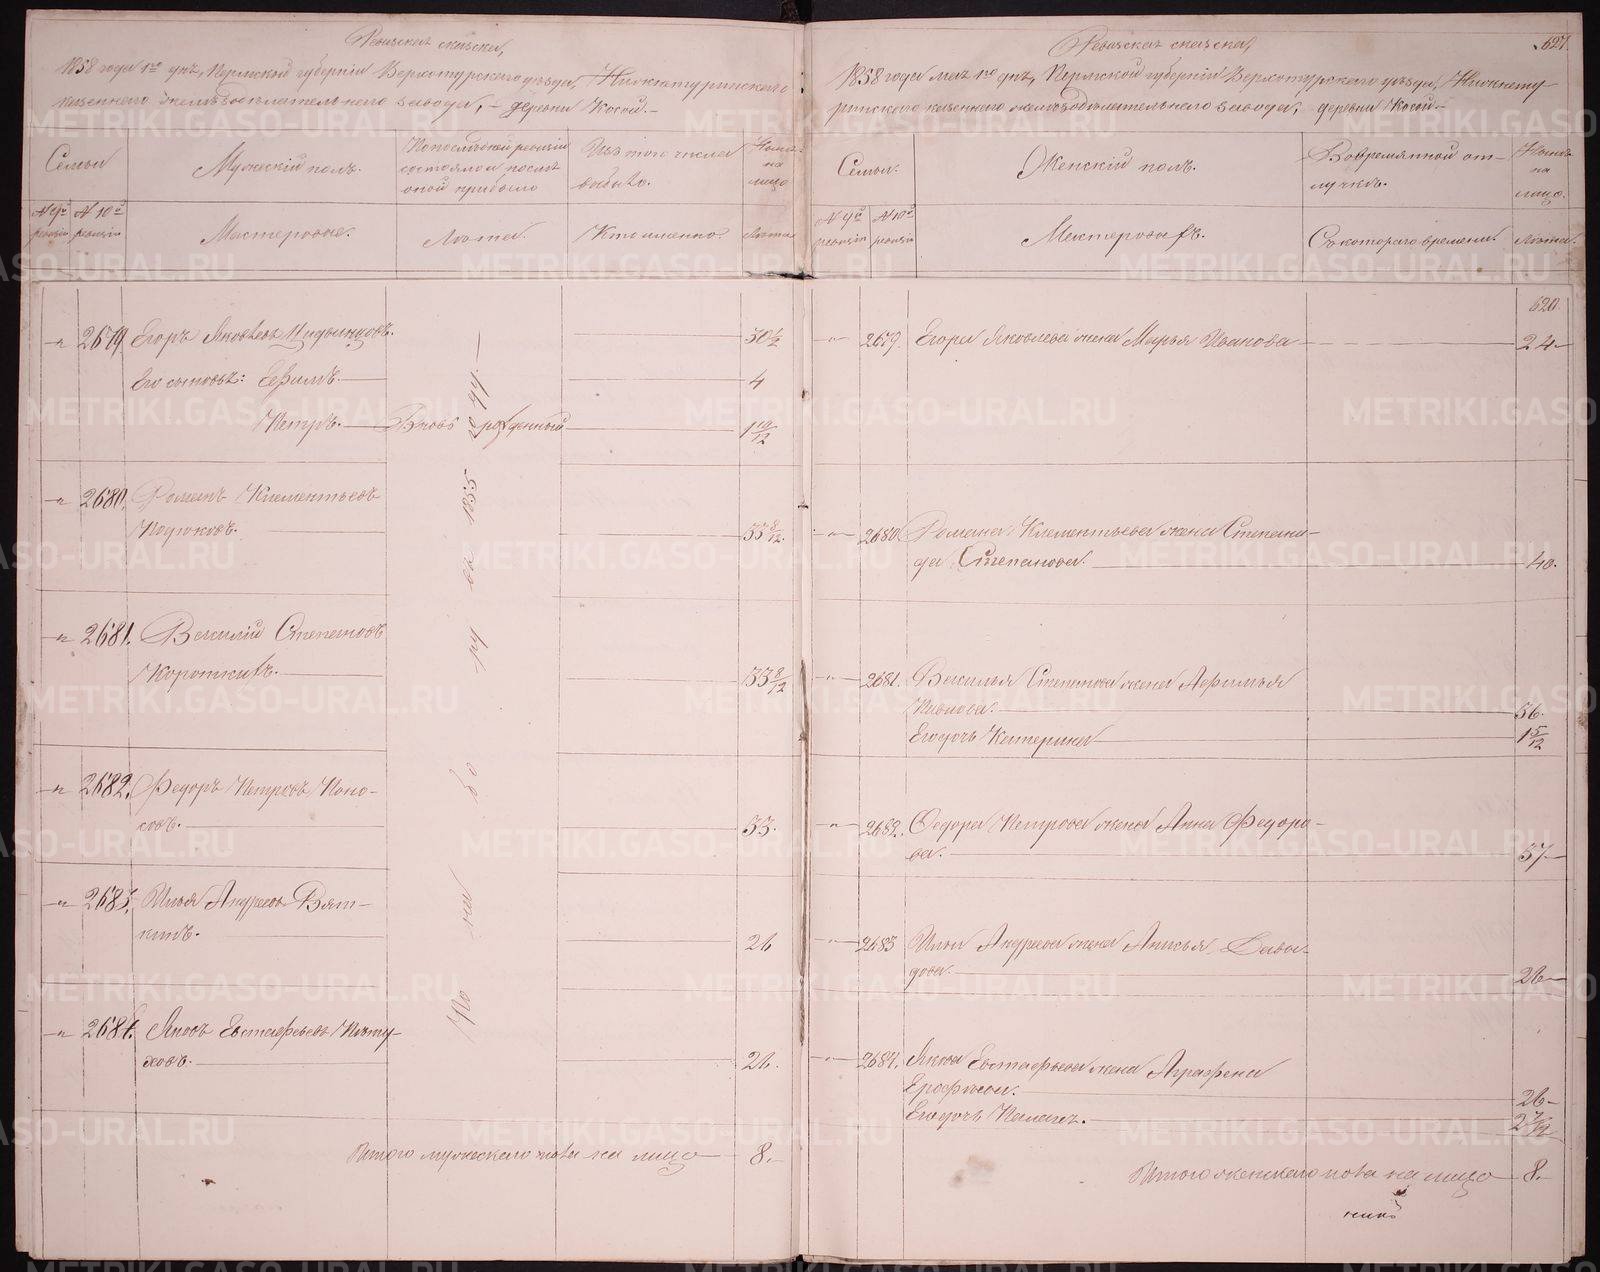 Ревизская сказка,
1858 года 1го дня, Пермской губернiи Верхотурскаго уѣзда, Нижнетуринскаго
казеннаго желѣзодѣлательнаго завода, – деревни Косой.–
Семьи
Мужескiй полъ.
По послѣдней ревизiи состояло и послѣ оной прибыло
Изъ того числа выбыло.
Нынѣ на лицо
№ 9й ревизiи
№ 10й ревизiи
Мастеровые.
Лѣта.
Кто именно.
Лѣта
" 2679. Егоръ Яковлевъ 30 1/2
Его сыновья: Ефимъ. 4
Петръ. Вновь рожденный 1 10/12
" 2680. Романъ Клементьевъ
33 8/12.
" 2681. Василiй Степановъ
Короткихъ. 33 8/12
" 2682. Федоръ Петровъ Поно-
совъ. 33.
" 2683. Илья Андреевъ Вят-
кинъ. 26
" 2684. Яковъ Евстафьевъ Пѣту-
ховъ. 26.
Итого мужескаго пола на лицо 8.
627.
Ревизская сказка,
1858 года мая 1го дня, Пермской губернiи Верхотурскаго уѣзда, Нижнету-
ринскаго казеннаго желѣзодѣлательнаго завода, деревни Косой.–
Семьи.
Женскiй полъ.
Во временной от-
лучкѣ.
Нынѣ на лицо.
№ 9й ревизiи
№ 10й ревизiи
Съ котораго времени.
Лѣта.
620.
" 2679. Егора Яковлева жена Марья Иванова 24
" 2680. Романа Клементьева жена Степани-
да Степанова. 40.
" 2681. Василья Степанова жена Афимья
Иванова. 36.
Его дочь Катерина 1 5/12
" 2682. Федора Петрова жена Анна Федоро-
ва. 37
" 2683 Ильи Андреева жена Анисья Давы-
дова. 26
" 2684. Якова Евстафьева жена Аграфена
Ерофеева. 26
Его дочь 2 7/12
Итого женскаго пола на лицо 8.
METRIKI.GASO-URAL.RU